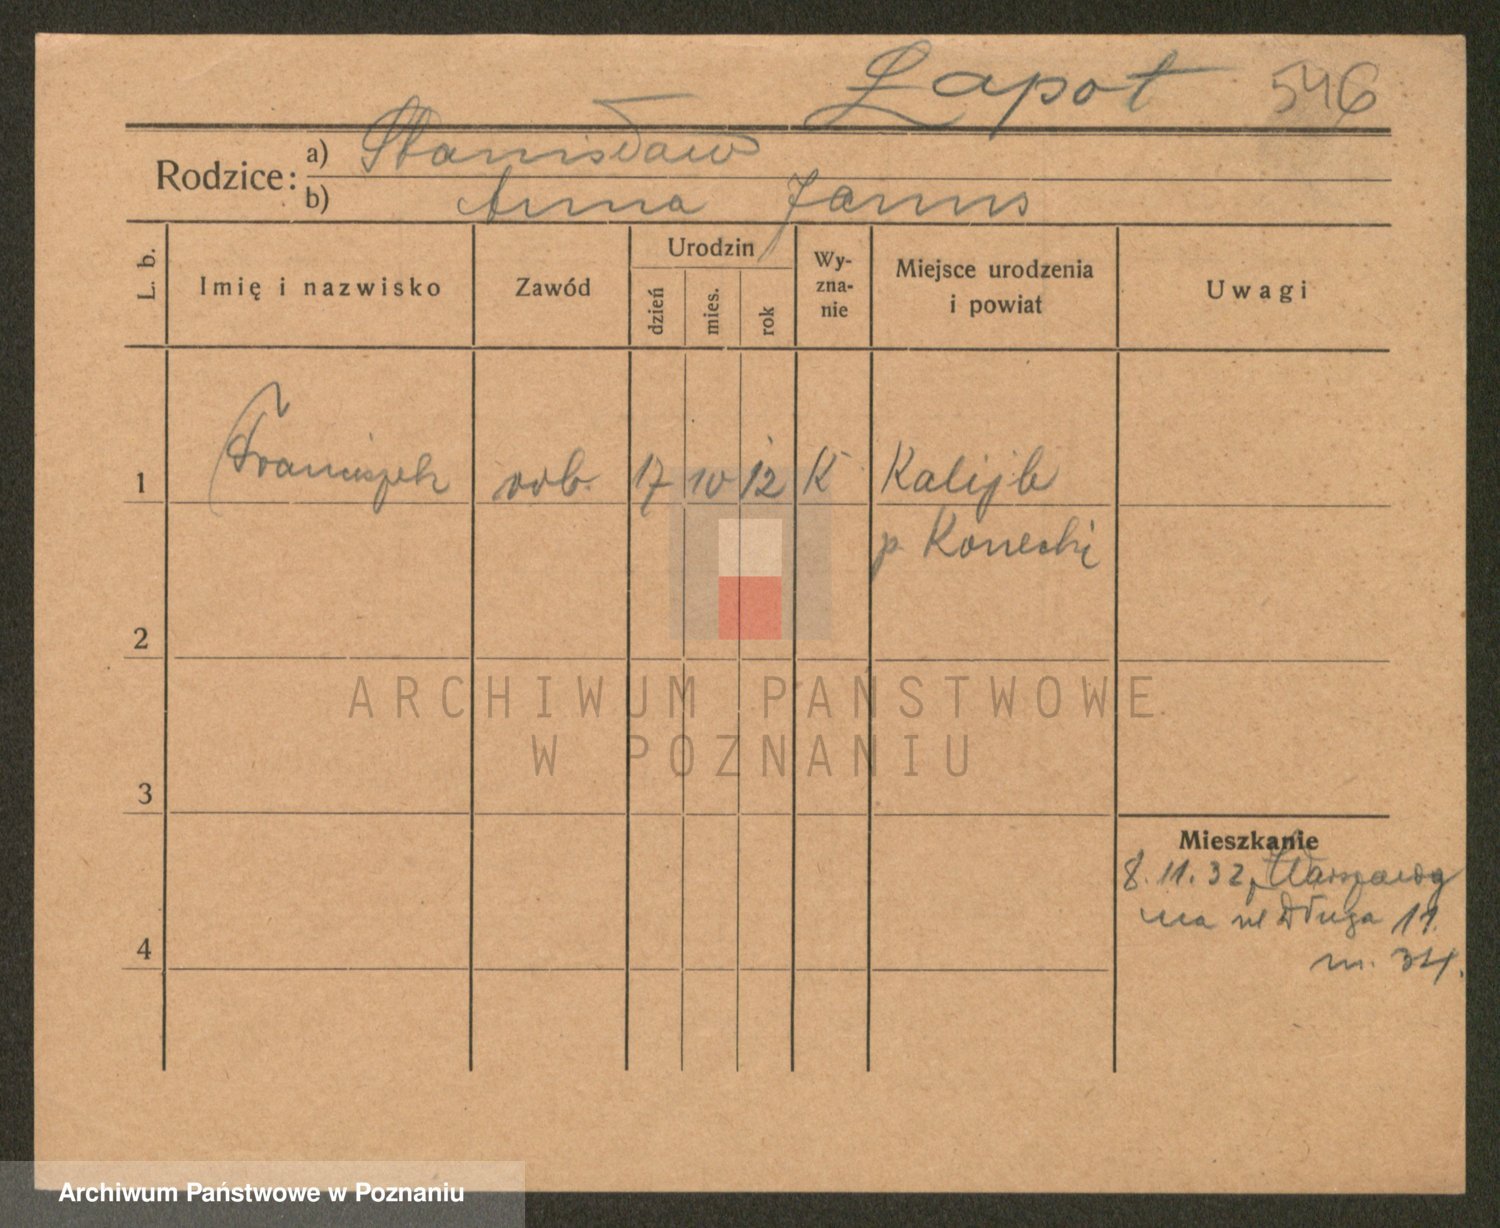 Łapot 546
Rodzice: a) Stanisław
b) Anna Janus
L. b.
Imię i nazwisko
Zawód
Urodzin
dzień
mies.
rok
Wy-
zna-
nie
Miejsce urodzenia
i powiat
Uwagi
1 Franciszek rob. 17 10 12 K
p. Konecki
2
ARCHIWUM PAŃSTWOWE
W POZNANIU
3
Mieszkanie
8.11.32
ul Długa 11
m. 34.
4
Archiwum Państwowe w Poznaniu